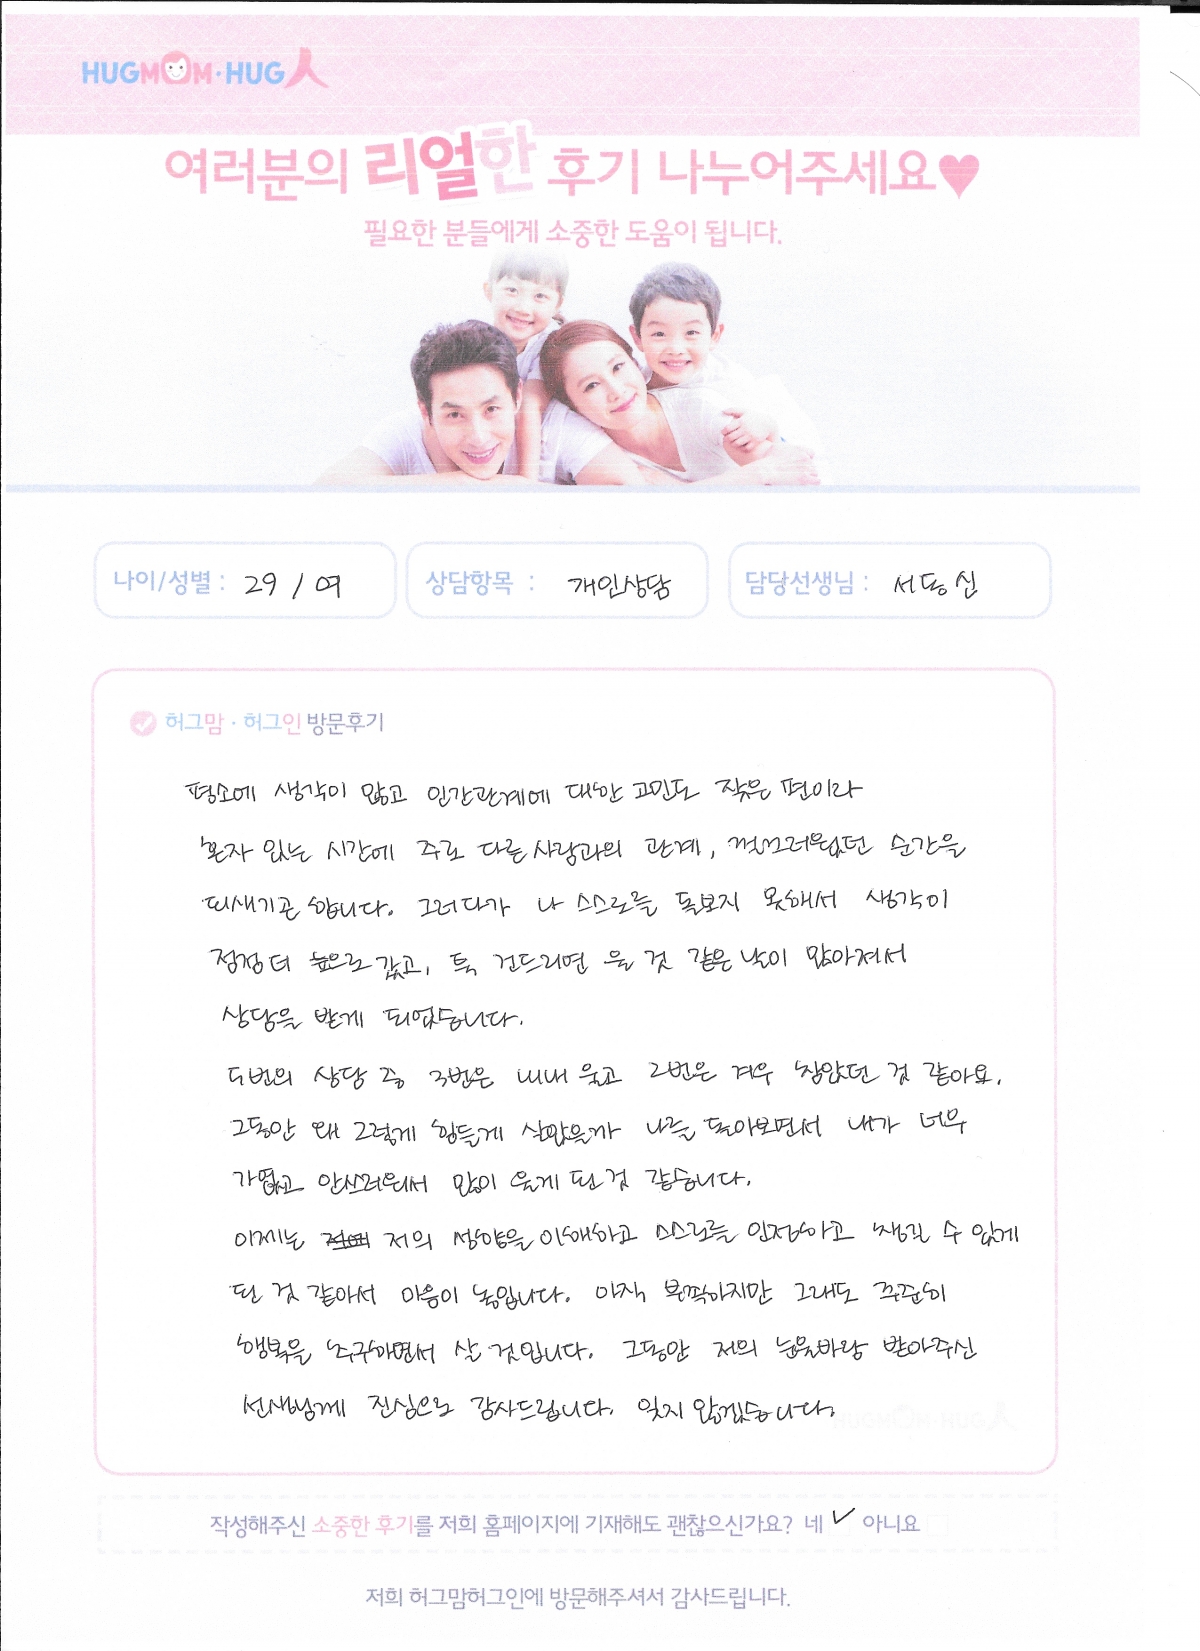 HUGMOM·HUG人
여러분의 리얼한 후기 나누어주세요♥
필요한 분들에게 소중한 도움이 됩니다.
나이/성별 : 29 / 여
상담항목 : 개인상담
담당선생님 : 서동신
허그맘 · 허그인 방문후기
평소에 생각이 많고 인간관계에 대한 고민도 잦은 편이라
혼자 있는 시간에 주로 다른 사람과의 관계, 껄끄러웠던 순간을
되새기곤 합니다. 그러다가 나 스스로를 돌보지 못해서 생각이
점점 더 늪으로 갔고, 툭 건드리면 울 것 같은 날이 많아져서
상담을 받게 되었습니다.
5번의 상담 중 3번은 내내 울고 2번은 겨우 참았던 것 같아요.
그동안 왜 그렇게 힘들게 살았을까 나를 돌아보면서 내가 너무
가엾고 안쓰러워서 많이 울게 된 것 같습니다.
이제는 저의 성향을 이해하고 스스로를 인정하고 챙길 수 있게
된 것 같아서 마음이 놓입니다. 아직 부족하지만 그래도 꾸준히
행복을 추구하면서 살 것입니다. 그동안 저의 눈물바람 받아주신
선생님께 진심으로 감사드립니다. 잊지 않겠습니다.
HUGMOM·HUG人
작성해주신 소중한 후기를 저희 홈페이지에 기재해도 괜찮으신가요? 네 ✓ 아니요
저희 허그맘허그인에 방문해주셔서 감사드립니다.